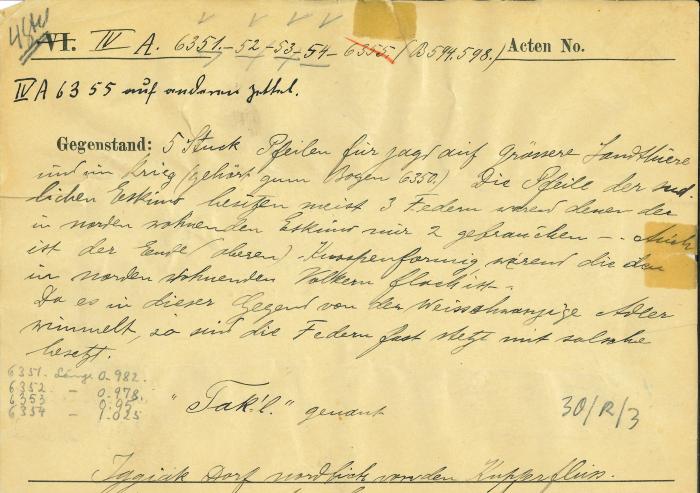 VI. IV A. 6351.-52-53-54-6355. (B 594.598.) Acten No.
IV A 6355 auf anderen zettel.
Gegenstand: 5 Stuck Pfeilen für jagd auf Grössere Landthiere
und im Krieg (gehört zum Bogen 6350.) Die Pfeile der süd-
lichen Eskimo besitzen meist 3 Federn wärend denen der
in norden wohnenden Eskimo nur 2 gebrauchen - Auch
ist der Ende (oberen) Knopenformig wärend die den
in norden wohnenden Volkern flach ist.
Da es in dieser Gegend von der Weisschwanzige Adler
wimmelt, so sind die Federn fast stetz mit solche
besetzt.
6351. Länge 0.982.
6352 - 0.978.
6353 0.95
6354 - 1.025
"Tak'l." genant
30/R/3
Iggiak Dorf nordlich von den Kupperfluss.